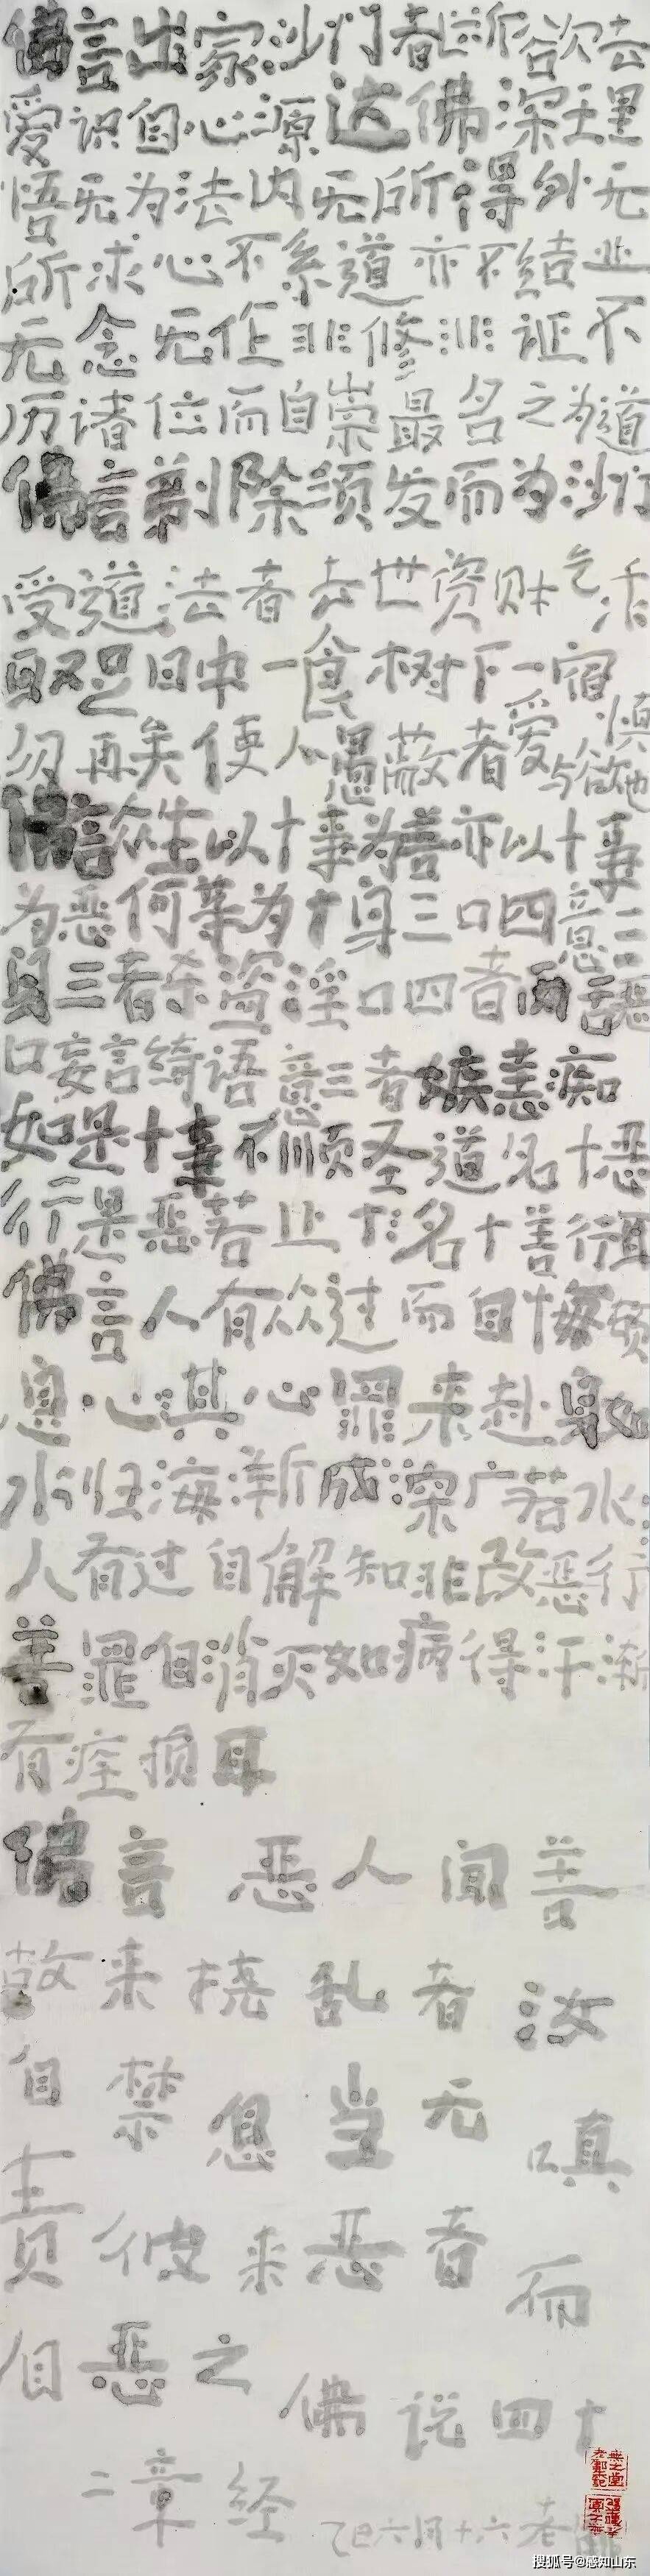 佛言出家沙门者断欲去
爱识自心源达佛深理
悟无为法内无所得外无
所求心不系道亦不结业
无念无作非修非证不
历诸位而自崇最名之为道
佛言剃除须发而为沙门
受道法者去世资财乞活
取足日中一食树下一宿
慎勿再矣使人愚蔽者爱与欲也
佛言众生以十事为善亦以十事
为恶何等为十身三口四意三
身三者杀盗淫口四者两舌恶
口妄言绮语意三者嫉恚痴
如是十事不顺圣道名十恶
行是恶若止名十善行耳
佛言人有众过而自悔顿
息心其心罪来赴身如
水归海渐成深广若水
人有过自解知非改恶行
善罪自消灭如病得汗渐
有痊损耳
佛言恶人闻善
故来挠乱者汝
自禁息当无嗔
责彼来恶者而
自恶之
佛说四十
二章经
乙巳六月十六老
搜狐号@感知山东